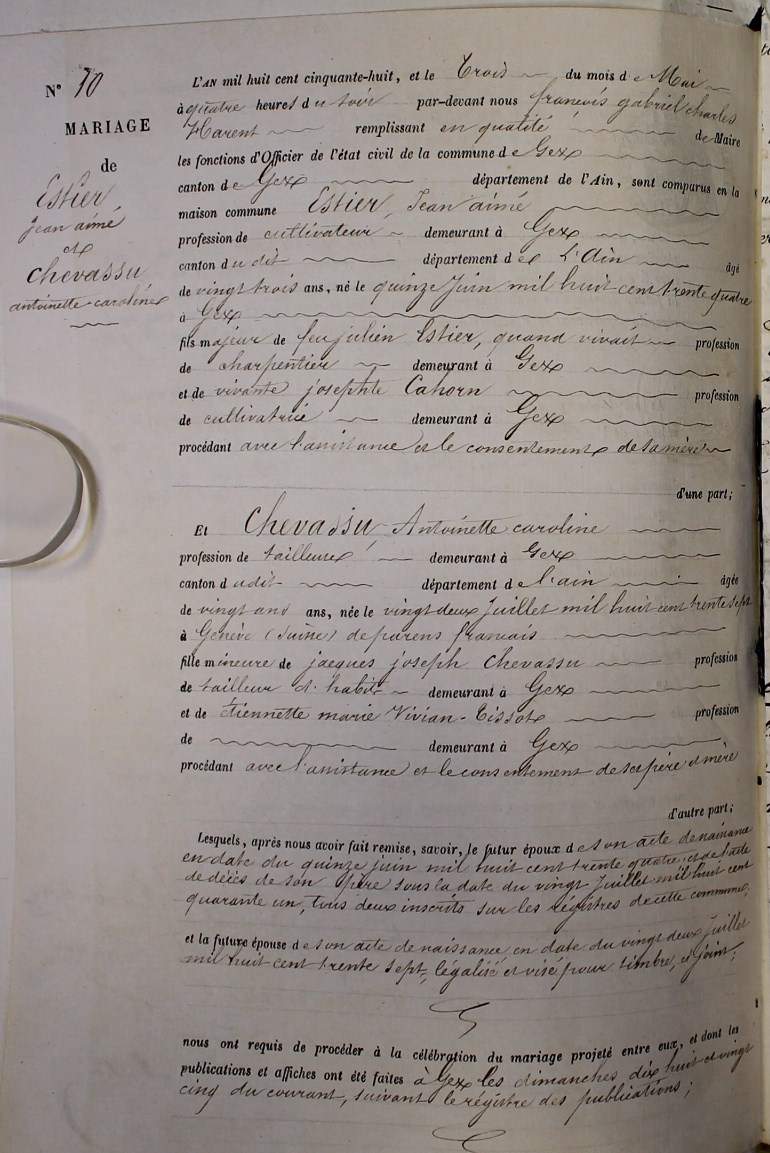 N° 10
MARIAGE
de
Estier
Jean aimé
et
Chevassu
antoinette-caroline
L'AN mil huit cent cinquante-huit, et le Trois du mois de Mai
à quatre heures du soir par-devant nous françois gabriel charles
Harent remplissant en qualité de Maire
les fonctions d'Officier de l'état civil de la commune de Gex
canton de Gex département de l'Ain, sont comparus en la
maison commune Estier, Jean aimé
profession de cultivateur demeurant à Gex
canton dudit département de L'Ain âgé
de vingt trois ans, né le quinze Juin mil huit cent trente quatre
à Gex
fils majeur de feu julien Estier, quand vivait profession
de charpentier demeurant à Gex
et de vivante josephte Cahorn profession
de cultivatrice demeurant à Gex
procédant avec l'assistance et le consentement de sa mère
d'une part;
Et Chevassu Antoinette caroline
profession de tailleuse demeurant à Gex
canton dudit département de l'ain âgée
de vingt ans ans, née le vingt deux Juillet mil huit cent trente sept
à Genève (Suisse) de parens francais
fille mineure de jacques joseph Chevassu profession
de tailleur d'habits demeurant à Gex
et de Etiennette marie Vivian-Tissot profession
de demeurant à Gex
procédant avec l'assistance et le consentement de ses père et mère
d'autre part;
Lesquels, après nous avoir fait remise, savoir, le futur époux de son acte de naissance
en date du quinze juin mil huit cent trente quatre, et de l'acte
de décès de son père sous la date du vingt Juillet mil huit cent
quarante un, tous deux inscrits sur les régistres de cette commune,
et la future épouse de son acte de naissance, en date du vingt deux Juillet
mil huit cent trente sept, légalisé et visé pour timbre, et joint;
nous ont requis de procéder à la célébration du mariage projeté entre eux, et dont les
publications et affiches ont été faites à Gex les dimanches dix huit et vingt
cinq du courant, suivant le régistre des publications;